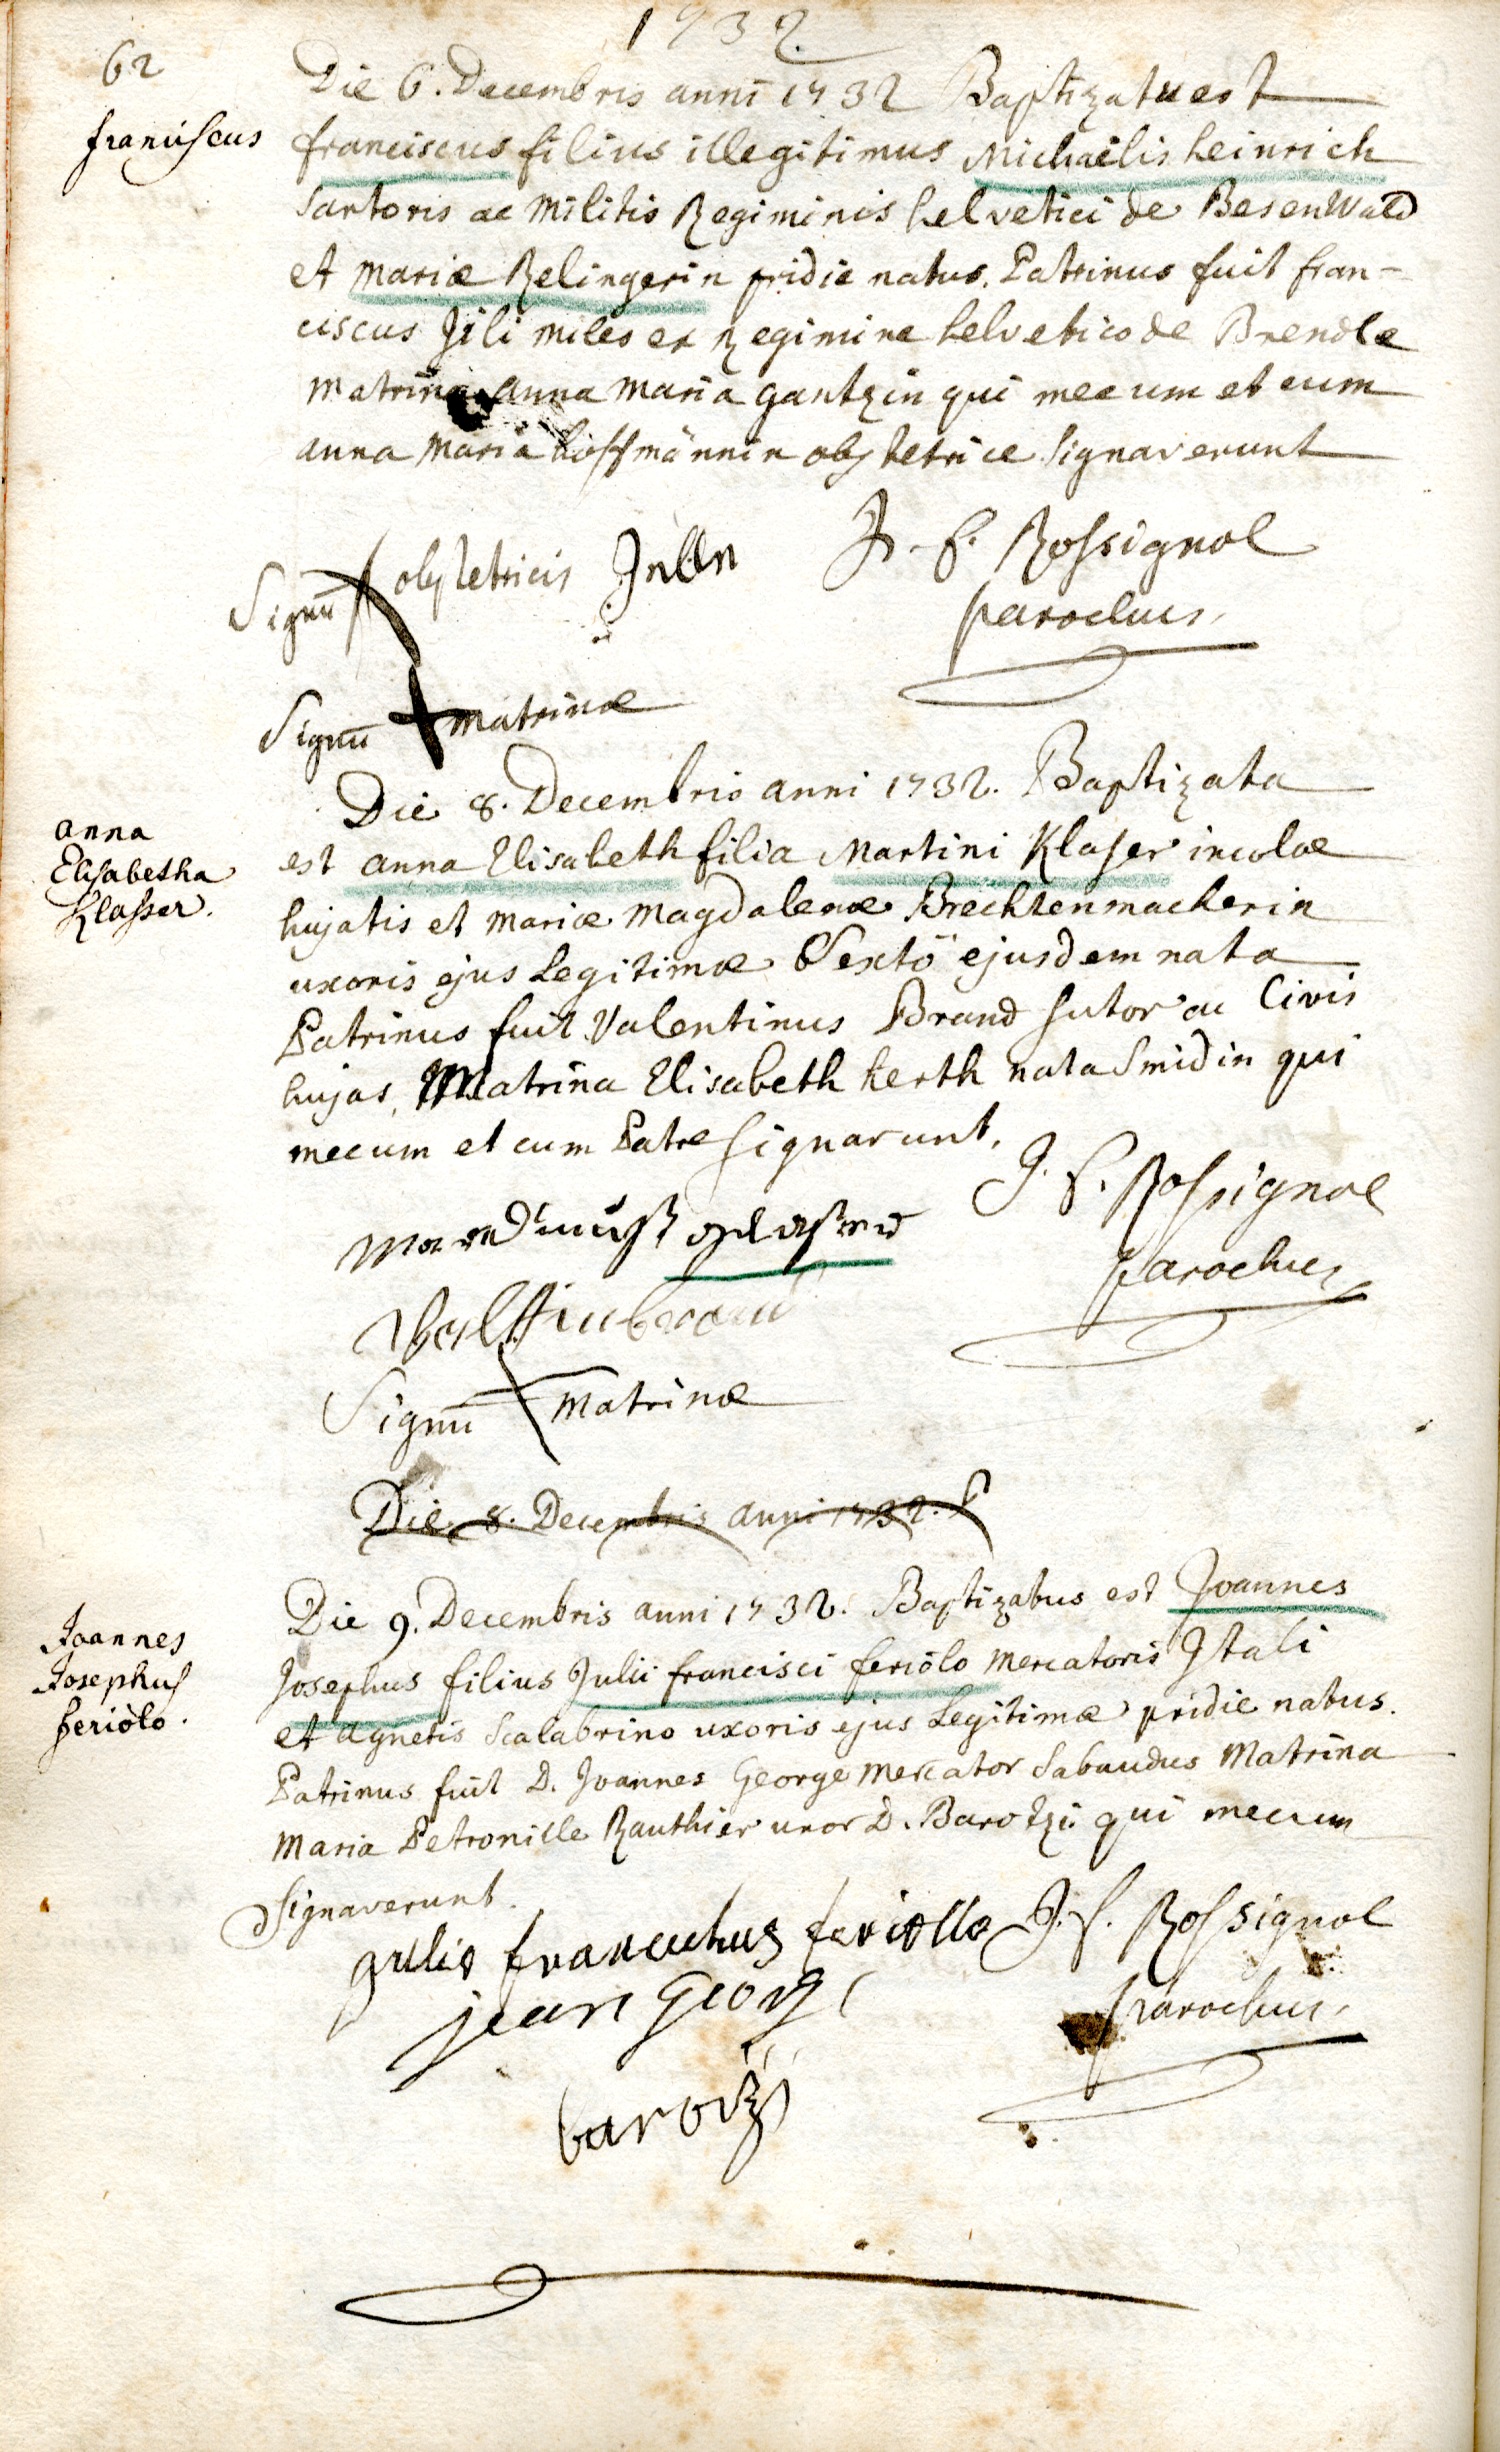 1732.
62
Die 6. Decembris anni 1732 Baptizatu est
franciscus
franciscus filius illegitimus Michaëlis heinrich
sartoris ac militis Regiminis helvetici de Besenwald
et mariæ Relingerin pridie natus. Patrinus fuit fran-
ciscus Jili miles ex regimine helvetico de Brendle
matrina anna maria gantzin qui mecum et cum
anna maria hoffmännin obstetrice signaverunt
Signū obstetricis
J. f. Rossignol
parochus
Signū + matrinæ
Die 8. Decembris anni 1732. Baptizata
anna
Elisabetha
Klasser.
est anna Elisabeth filia Martini Klaser incolæ
hujatis et mariæ magdalenæ Brechtenmacherin
uxoris ejus legitimæ Sexto ejusdem nata
Patrinus fuit Valentinus Brand sutor ac Civis
hujas, Matrina Elisabeth herth nata Smidin qui
mecum et cum Patre signarunt.
J. f. Rossignol
parochus
Signū matrinæ
Die 8. Decembris anni 1732.
Die 9. Decembris anni 1732. Baptizatus est Joannes
Joannes
Josephus
feriolo.
Josephus filius Julii francisci feriolo mercatoris Itali
et agnetis Scalabrino uxoris ejus legitimæ pridie natus.
Patrinus fuit D. Joannes George mercator Sabaudus Matrina
maria Petronille Rauthier uxor D. Barotzi qui mecum
signaverunt.
J. f. Rossignol
parochus
jean George
barozi